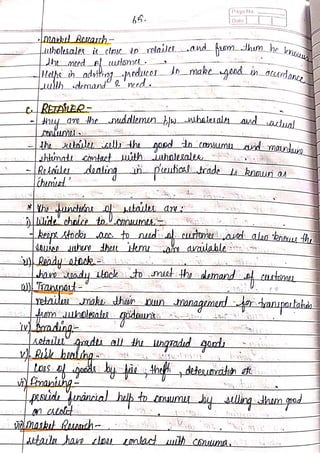 Page No.
Date
45.
· Market Research -
wholesaler is close to retailer and from them he knows
the need of customer.
- Helps in advising producer to make good in accordance
with demand & need.
C. RETAILER -
- they are the middlemen b/w wholesaler and actual
consumer.
- The retailer sells the good to consumer and maintain
intimate contact with wholesaler.
- Retailer dealing in p'ceutical trade is known as
Chemist
* The functions of retailer are:
i) Wide choice to consumer -
- keeps stocks acc. to need of customer and also knows the
source where these items are available
ii) Ready stock -
have ready stock to meet the demand of customer
iii) Transport -
retailer make their own management for transportation
from wholesaler godown.
iv) Grading -
retailer grades all the ungraded goods
v) Risk bearing -
Loss of goods by fire, theft, deterioration etc
vi) Financing -
provide financial help to consumer by selling them good
on credit
vii) Market Research -
retailer have close contact with consumer.